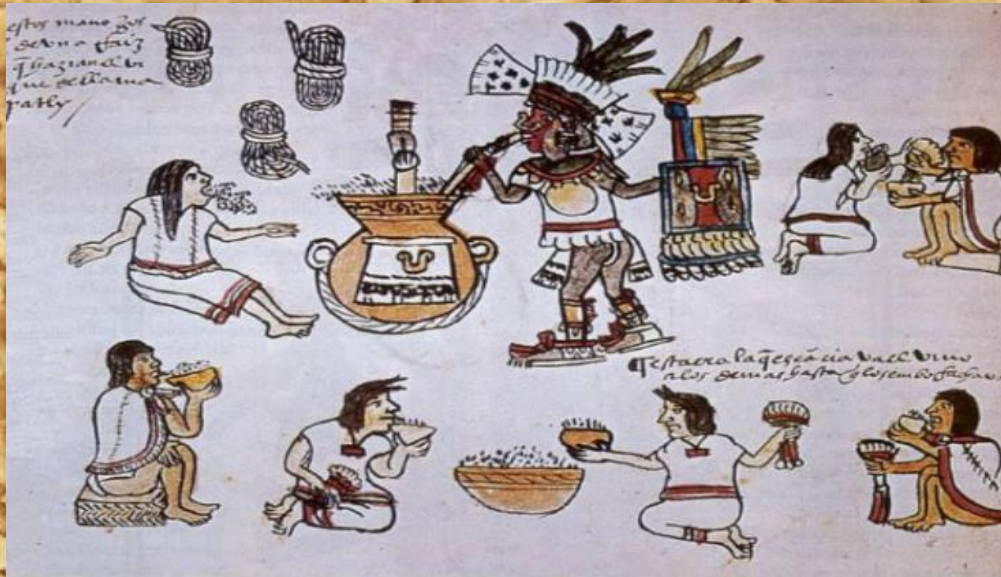 estos mano jos
de vna Raiz
q̃ hazian el vi
que se llama
patly /
¶ esta era la q̃ escãcia va el vino
a los demas hasta q̃ los